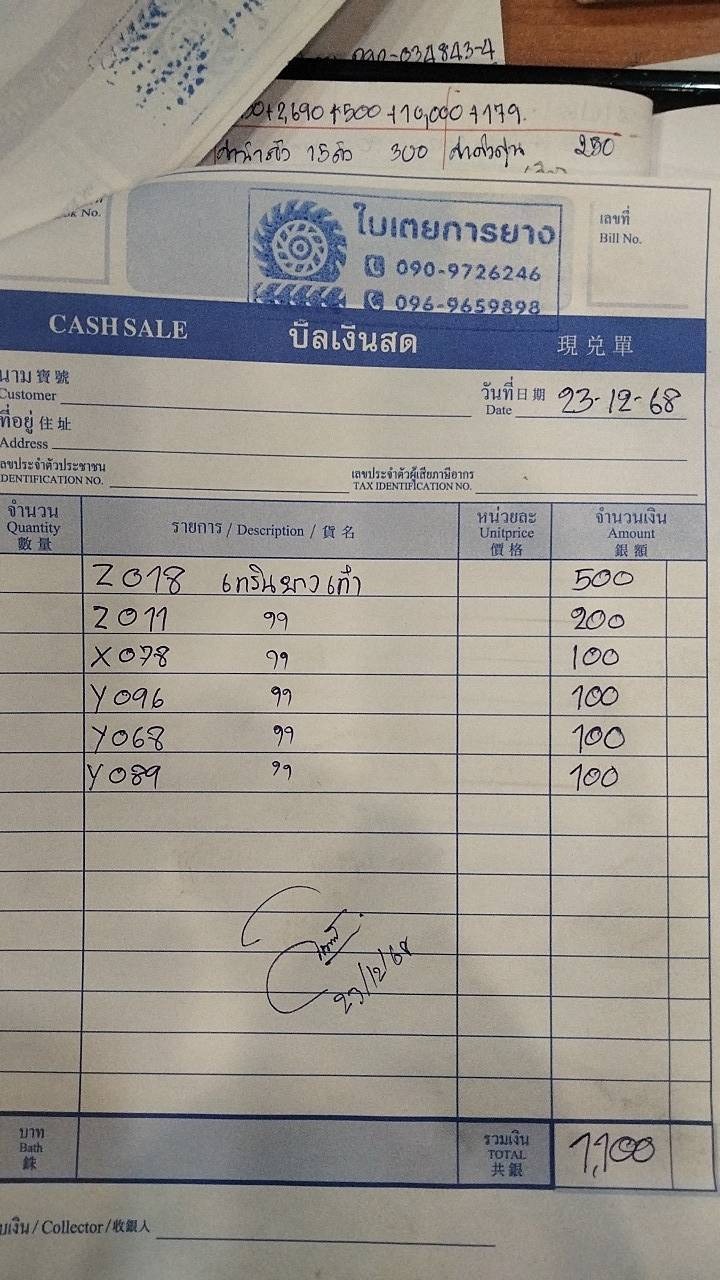 -034843-4
00+2,690+500+10,000+179.
15 ตัว 300 250
No.
ใบเตยการยาง
090-9726246
096-9659898
เลขที่
Bill No.
CASH SALE บิลเงินสด 現兌單
นาม 寶號
Customer
วันที่ 日期
Date 23-12-68
ที่อยู่ 住址
Address
เลขประจำตัวประชาชน
IDENTIFICATION NO.
เลขประจำตัวผู้เสียภาษีอากร
TAX IDENTIFICATION NO.
จำนวน
Quantity
數量
รายการ / Description / 貨名
หน่วยละ
Unitprice
價格
จำนวนเงิน
Amount
銀額
Z018 500
Z011 " 200
X078 " 100
Y096 " 100
Y068 " 100
Y089 " 100
23/12/68
บาท
Bath
銖
รวมเงิน
TOTAL
共銀
1,100
บเงิน / Collector / 收銀人